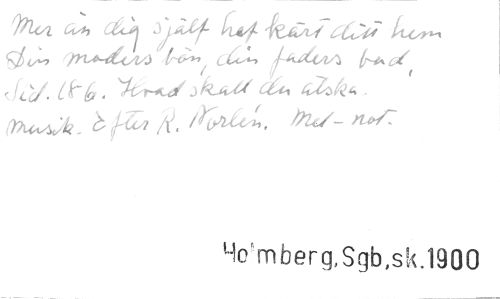 Mer än dig själf haf kärt ditt hem
Din moders bön, din faders bud,
Sid. 186. Hvad skall du älska.
Musik. Efter R. Norlén. Med-not.
Holmberg,Sgb,sk.1900